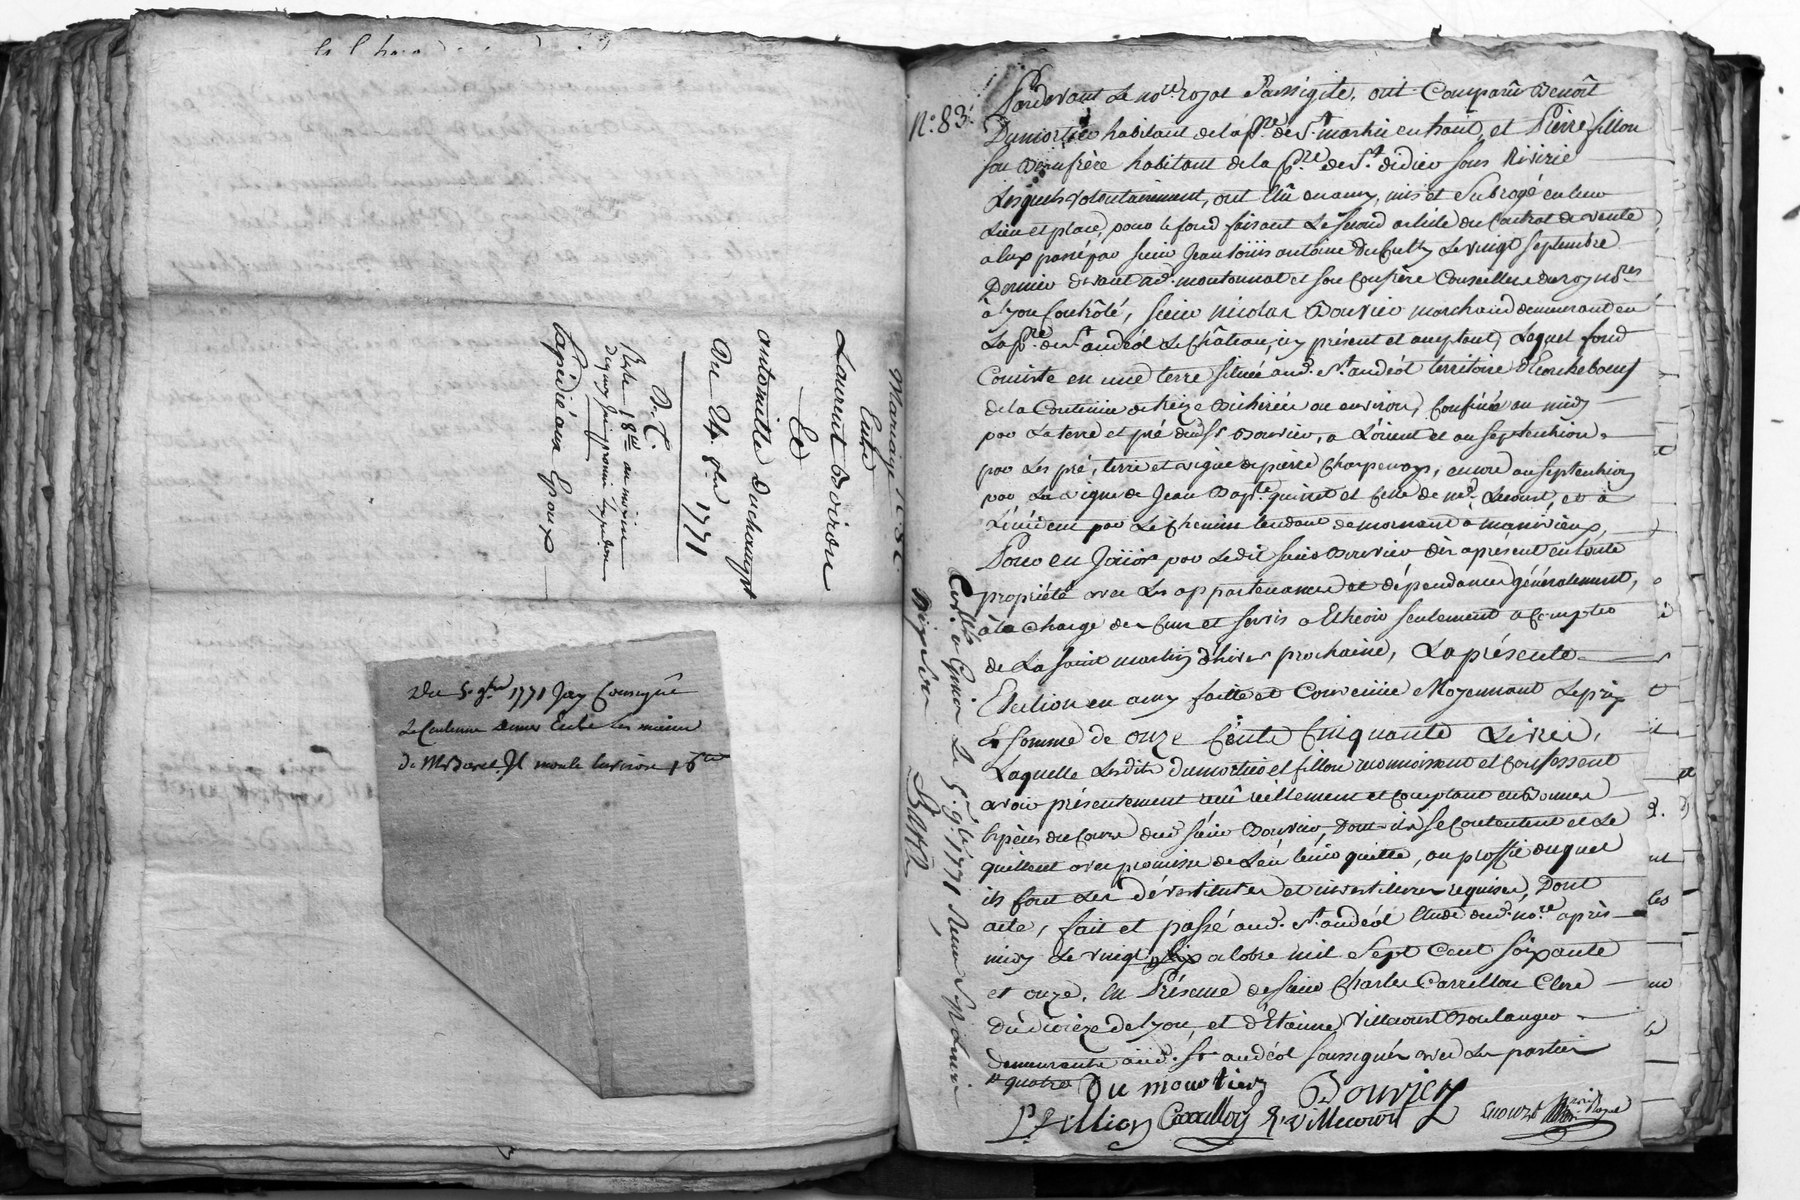 Mariage
Entre
Laurent Boiron
Et
antoinette Duchamp
Du 24. 8bre 1771
B. C.
Reste 18 lt au moien
Lapédié aux Epoux
Du 5. 9bre 1771 Jay Consigné
Le Contenu
de Mr Il monte Environ 16 lt
Controllé à Givor Le 5. 9bre 1771
N.° 83.
Pardevant Le no.re royal Soussigné, ont Comparû Benoît
Dumortier habitant de la p.sse de S.t martin en haut, et Pierre fillon
son Beaufrère habitant de la p.sse de S.t didier sous Riverie
Lesquels volontairement, ont élû en amy, mis et Subrogé en leur
Lieu et place, pour le fond faisant Le Second article du Contrat de vente
à eux passé par sieur Jean Louis antoine Le vingt Septembre
Dernier devant M.e montonnat et son Confrère Conseillers du roy no.res
à Lyon Controlé, Sieur nicolas Bouvier marchand demeurant en
La p.sse de S.t andéol Le Château, icy présent et acceptant, Lequel fond
Consiste en une terre située aud. S.t andéol territoire
de la Contenue de treize Bicherées ou environ, Confinée au midy
par La terre et pré dud. S.r Bouvier, a L'orient et au septentrion
par Les pré, terre et vigne de pierre Charpenay, encore au septentrion
par La vigne de Jean Bap.te guinet et Celle de Lecourt, et à
L'occident par Le Chemin tendant de mornant à manévieux,
Pour en Joüir par Ledit sieur Bouvier dès aprésent en toute
propriété avec Les appartenances et dépendances généralement,
à La Charge des Cens et servis a Echeoir seulement a Compter
de La saint martin d'hiver prochaine, La présente
Election en amy faitte et Convenüe Moyennant Le prix
Et somme de onze Cents Cinquante Livres,
Laquelle Lesdits dumortier et fillon reconnoissent et Confessent
avoir présentement reçû reëllement et Comptant en Bonnes
Espèces du Cours dud. sieur Bouvier, Dont ils se Contentent et Le
quittent avec promesse de L'en tenir quitte, au proffit duquel
ils font Les dévestitures et investitures requises, Dont
acte, fait et passé aud. S.t andéol Etude dud. no.re après
midy Le vingt octobre mil Sept Cent Soixante
et onze, En Présence de sieur Charles Carrillon Clerc
du diocèze de Lyon, et d'Etienne Villecourt Boulanger
demeurants aud. S.t andéol soussignés avec Les parties
Du mourtier Bouvier
P. Fillion Carrillon E. Villecourt